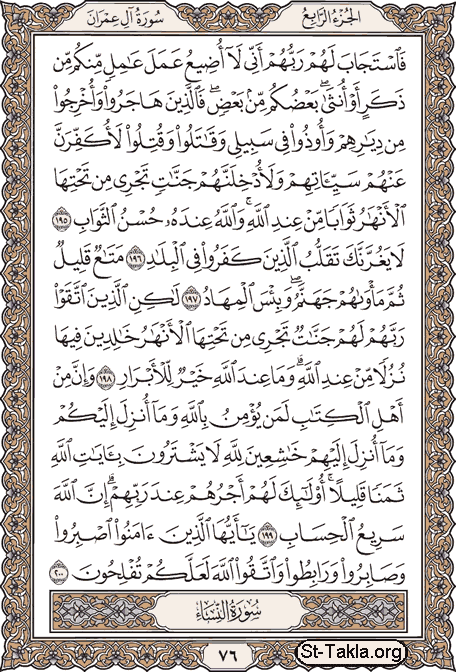 سُورَةُ آلِ عِمْرَانَ الجُزْءُ الرَّابِعُ
فَٱسْتَجَابَ لَهُمْ رَبُّهُمْ أَنِّى لَآ أُضِيعُ عَمَلَ عَـٰمِلٍ مِّنكُم مِّن
ذَكَرٍ أَوْ أُنثَىٰ ۖ بَعْضُكُم مِّنۢ بَعْضٍ ۖ فَٱلَّذِينَ هَاجَرُوا۟ وَأُخْرِجُوا۟
مِن دِيَـٰرِهِمْ وَأُوذُوا۟ فِى سَبِيلِى وَقَـٰتَلُوا۟ وَقُتِلُوا۟ لَأُكَفِّرَنَّ
عَنْهُمْ سَيِّـَٔاتِهِمْ وَلَأُدْخِلَنَّهُمْ جَنَّـٰتٍ تَجْرِى مِن تَحْتِهَا
ٱلْأَنْهَـٰرُ ثَوَابًا مِّنْ عِندِ ٱللَّهِ ۗ وَٱللَّهُ عِندَهُۥ حُسْنُ ٱلثَّوَابِ ١٩٥
لَا يَغُرَّنَّكَ تَقَلُّبُ ٱلَّذِينَ كَفَرُوا۟ فِى ٱلْبِلَـٰدِ ١٩٦ مَتَـٰعٌ قَلِيلٌ
ثُمَّ مَأْوَىٰهُمْ جَهَنَّمُ ۚ وَبِئْسَ ٱلْمِهَادُ ١٩٧ لَـٰكِنِ ٱلَّذِينَ ٱتَّقَوْا۟
رَبَّهُمْ لَهُمْ جَنَّـٰتٌ تَجْرِى مِن تَحْتِهَا ٱلْأَنْهَـٰرُ خَـٰلِدِينَ فِيهَا
نُزُلًا مِّنْ عِندِ ٱللَّهِ ۗ وَمَا عِندَ ٱللَّهِ خَيْرٌ لِّلْأَبْرَارِ ١٩٨ وَإِنَّ مِنْ
أَهْلِ ٱلْكِتَـٰبِ لَمَن يُؤْمِنُ بِٱللَّهِ وَمَآ أُنزِلَ إِلَيْكُمْ
وَمَآ أُنزِلَ إِلَيْهِمْ خَـٰشِعِينَ لِلَّهِ لَا يَشْتَرُونَ بِـَٔايَـٰتِ ٱللَّهِ
ثَمَنًا قَلِيلًا ۗ أُو۟لَـٰٓئِكَ لَهُمْ أَجْرُهُمْ عِندَ رَبِّهِمْ ۗ إِنَّ ٱللَّهَ
سَرِيعُ ٱلْحِسَابِ ١٩٩ يَـٰٓأَيُّهَا ٱلَّذِينَ ءَامَنُوا۟ ٱصْبِرُوا۟
وَصَابِرُوا۟ وَرَابِطُوا۟ وَٱتَّقُوا۟ ٱللَّهَ لَعَلَّكُمْ تُفْلِحُونَ ٢٠٠
سُورَةُ النِّسَاءِ
٧٦
St-Takla.org